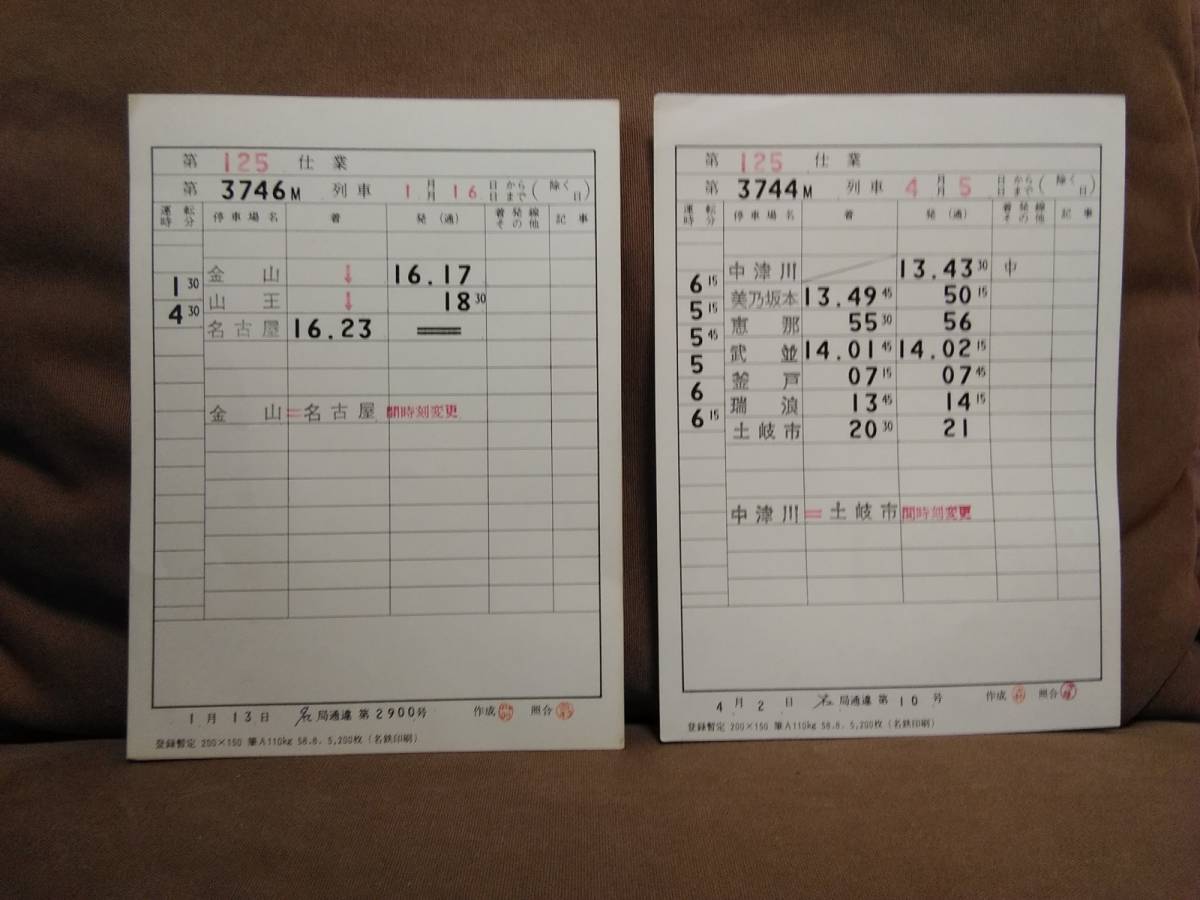 第 125 仕業
第 3746M 列車 1月16日から(除く)
月 日まで(日)
運転時分 停車場名 着 発（通） 着発線その他 記事
金山 ↓ 16.17
1 30
山王 ↓ 18 30
4 30
名古屋 16.23 ＝
金山＝名古屋間時刻変更
1月13日 名局通達 第2900号 作成 照合
登録暫定 200×150 筆A110kg 58.8. 5,200枚（名鉄印刷）
第 125 仕業
第 3744M 列車 4月5日から(除く)
月 日まで(日)
運転時分 停車場名 着 発（通） 着発線その他 記事
中津川 13.43 30 中
6 15
美乃坂本 13.49 45 50 15
5 15
恵那 55 30 56
5 45
武並 14.01 45 14.02 15
5
釜戸 07 15 07 45
6
瑞浪 13 45 14 15
6 15
土岐市 20 30 21
中津川＝土岐市間時刻変更
4月2日 名局通達 第10号 作成 照合
登録暫定 200×150 筆A110kg 58.8. 5,200枚（名鉄印刷）